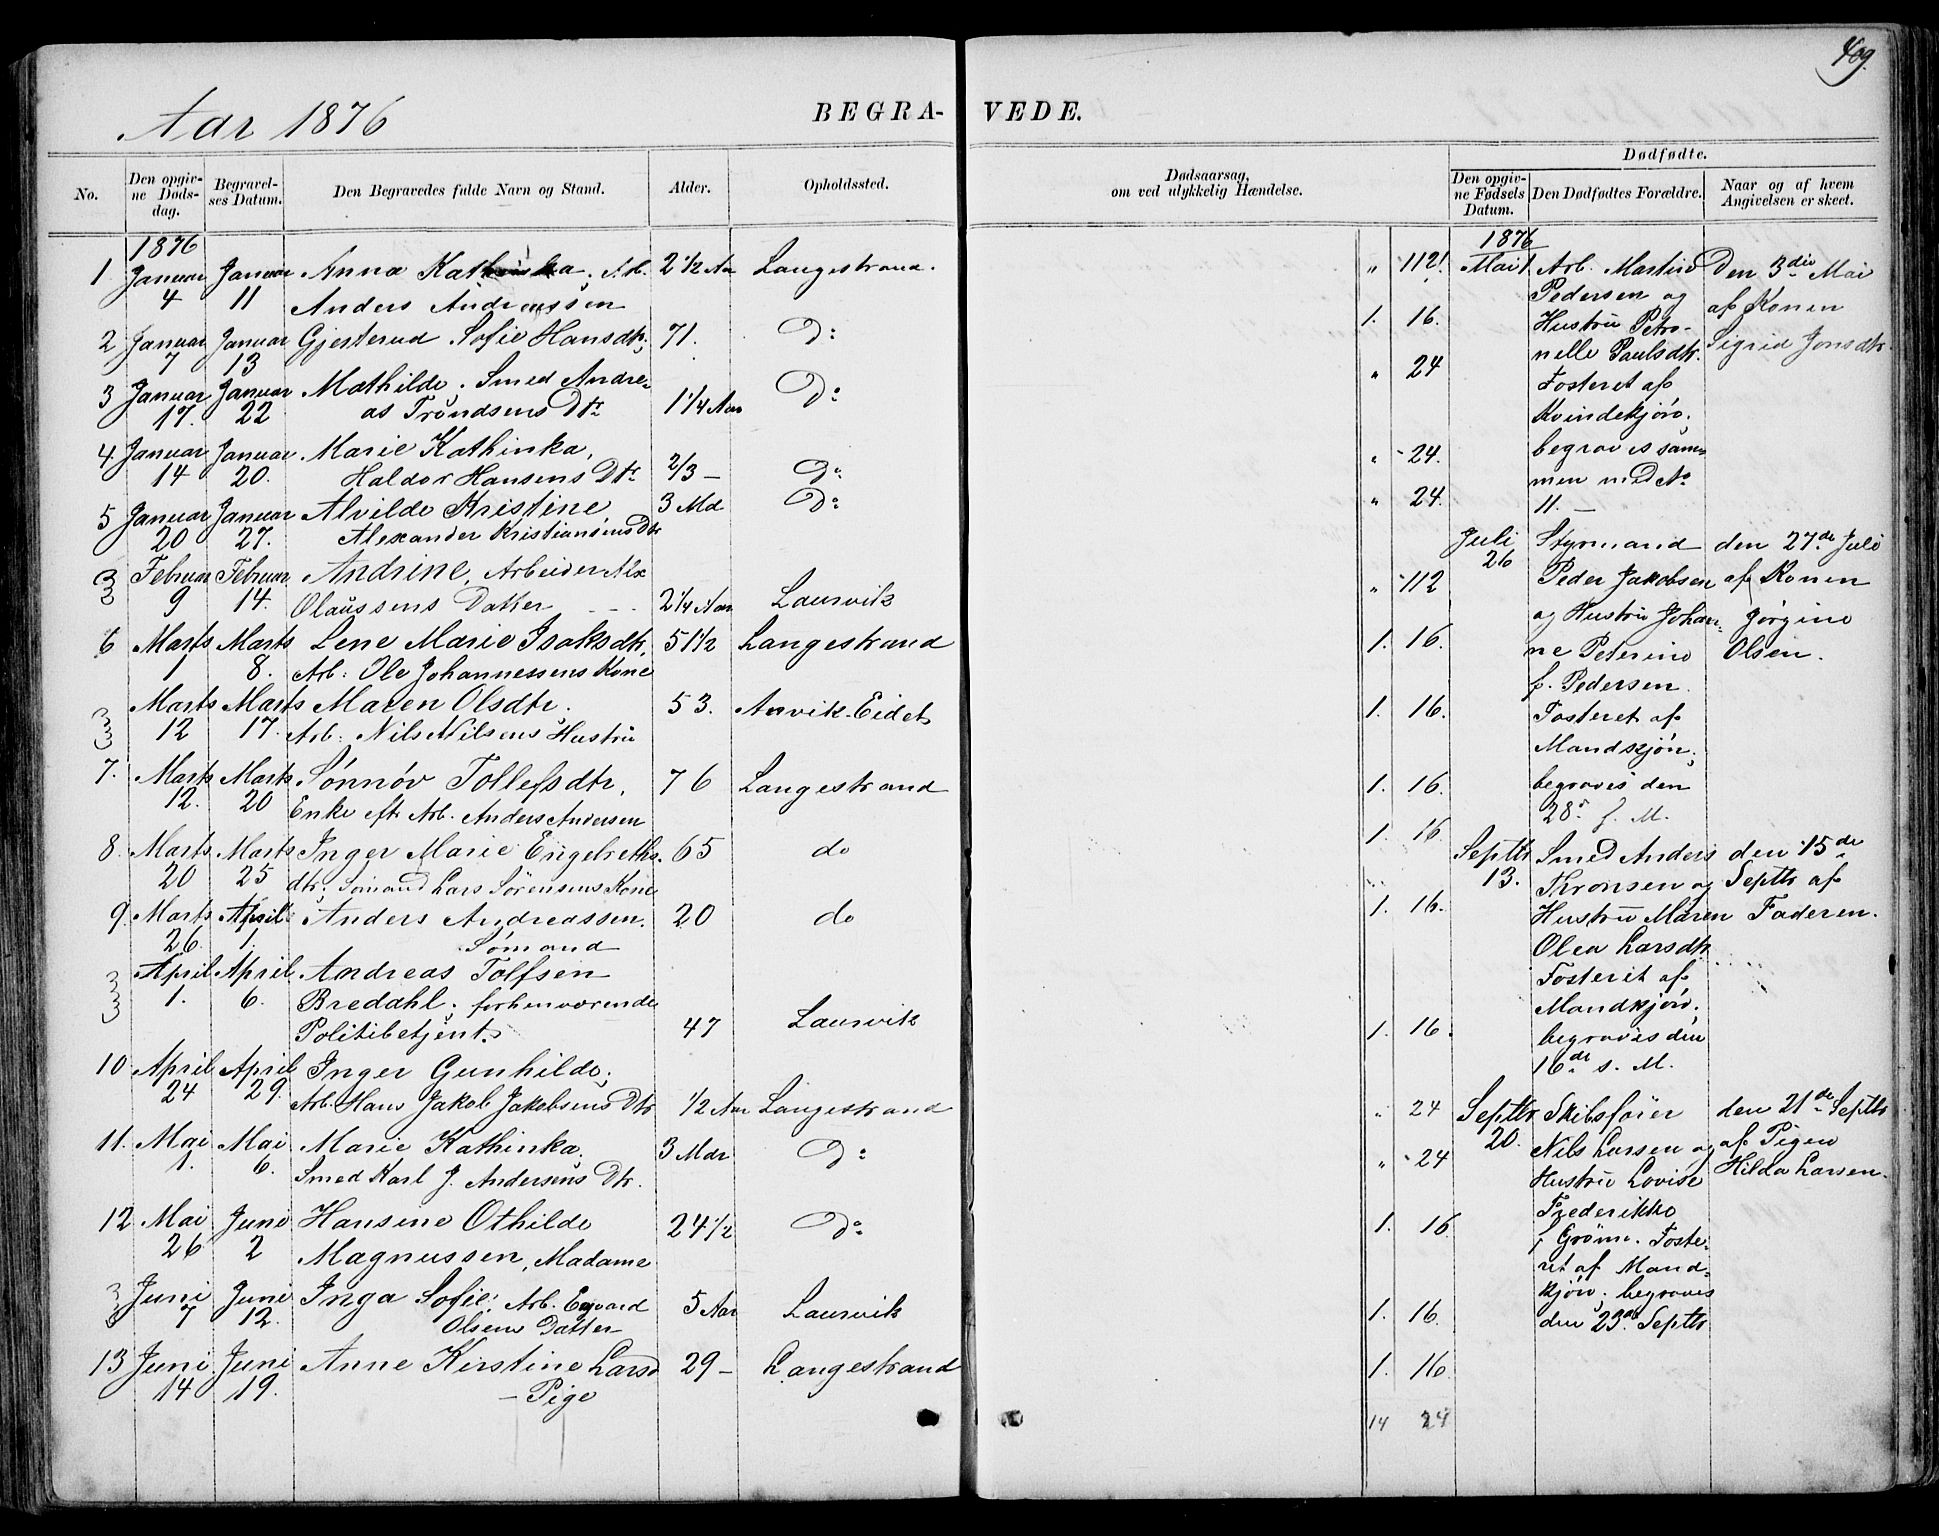 409.
Aar 1876
BEGRA-
VEDE.
No.
Den opgiv-
ne Døds-
dag.
Begravel-
ses Datum.
Den Begravedes fulde Navn og Stand.
Alder.
Opholdssted.
Dødsaarsag,
om ved ulykkelig Hændelse.
Dødfødte.
Den opgiv-
ne Fødsels
Datum.
Den Dødfødtes Forældre.
Naar og af hvem
Angivelsen er skeet.
1876
1 Januar Januar Anna Kathinka, Arb. 2 1/2 Aar Langestrand.
4 11 Anders Andreassen
2 Januar Januar Gjesterud Sofie Hansdtr; 71. Do
7 13
3 Januar Januar Mathilde. Smed Andre- Do
17. 22 as Trondsens Dtr 1 1/4 Aar
4. Januar Januar Marie Kathinka,
14 20. Haldor Hansens Dtr 2/3 - Do
5 Januar Januar Alvilde Kristine 3 Md Do
20 27. Alexander Kristiansens Dtr
Februar Februar Andrine, Arbeider Alx
9 14. Olaussens Datter 2 1/4 Aar Laurvik
6 Marts Marts Lene Marie Isaksdtr, 51 1/2 Langestrand
1 8. Arb: Ole Johannessens Kone
Marts Marts Maren Olsdtr. 53. Anvik-Eidet
12 17. Arb: Nils Nilsens Hustru
7. Marts Marts Sønnøv Tollefsdtr, 76 Langestrand
12. 20 Enke eftr Arb. Anders Andersen
8. Marts Marts Inger Marie Engelreths- 65 do
20 25 dtr; Sømand Lars Sørensens Kone
9. Marts April Anders Andreassen. 20 do
26. 1. Sømand
April April Andreas Tolfsen
1. 6. Bredahl; forhenværende
Politibetjent. 47 Laurvik
10 April April Inger Gunhilde;
24 29. Arb. Hans Jakob Jakobsens Dtr 1/2 Aar Langestrand
11. Mai Mai Marie Kathinka. 3 Mdr Do
1. 6. Smed Karl J. Andersens Dtr.
12 Mai Juni Hansine Othilde 24 1/2 Do
26 2 Magnussen, Madame
Juni Juni Inga Sofie; Arb. Edvard 5 Aar Laurvik
7 12. Olsens Datter
13 Juni Juni Anne Kirstine Larsd 29 - Langestrand
14 19. - Pige
" 112!
1. 16.
" 24
" 24.
" 24.
" 112
1. 16.
1. 16.
1. 16.
1. 16
1. 16.
1. 16.
" 24
" 24
1. 16
1. 16.
1. 16
14 24
1876
Mai 1 Arb. Martin Den 3die Mai
Pedersen og af Konen
Hustru Petro- Sigrid Jonsdtr.
nelle Paulsdtr.
Fosteret af
Kvindekjøn.
begraves sam-
men med No
11. -
Juli Styrmand den 27de Juli
26 Peder Jakobsen af Konen
og Hustru Johan- Jørgine
ne Peterine Olsen.
f. Pedersen.
Fosteret af
Mandskjøn;
begraves den
28. f. M.
Septbr Smed Anders den 15de
13. Thronsen og Septbr af
Hustru Maren Faderen.
Olea Larsdtr.
Fosteret af
Mandkjøn;
begraves den
16de s. M.
Septbr Skibsfører den 21de Septbr
20. Nils Larsen og af Pigen
Hustru Lovise Hilda Larsen.
Frederikke
f Grønn. Foste-
ret af Mand-
kjøn; begraves
den 23de Septbr